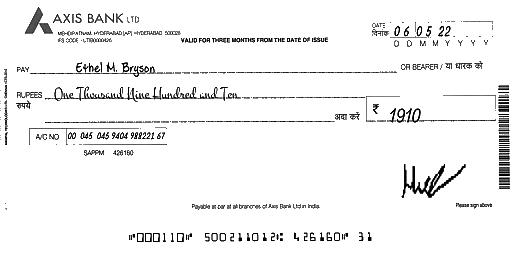 AXIS BANK LTD
MEHDIPATNAM, HYDERABAD [AP] HYDERABAD 500028
IFS CODE - UTIB0000426
VALID FOR THREE MONTHS FROM THE DATE OF ISSUE
DATE दिनांक 06 05 22
D D M M Y Y Y Y
PAY Ethel M. Bryson OR BEARER / या धारक को
RUPEES One Thousand Nine Hundred and Ten
रुपये अदा करें ₹ 1910
A/C NO 00 045 045 9404 988221 67
SAPPM 426160
Payable at par at all branches of Axis Bank Ltd in India.
Please sign above
⑈000110⑈ 500211012⑆ 426160⑈ 31